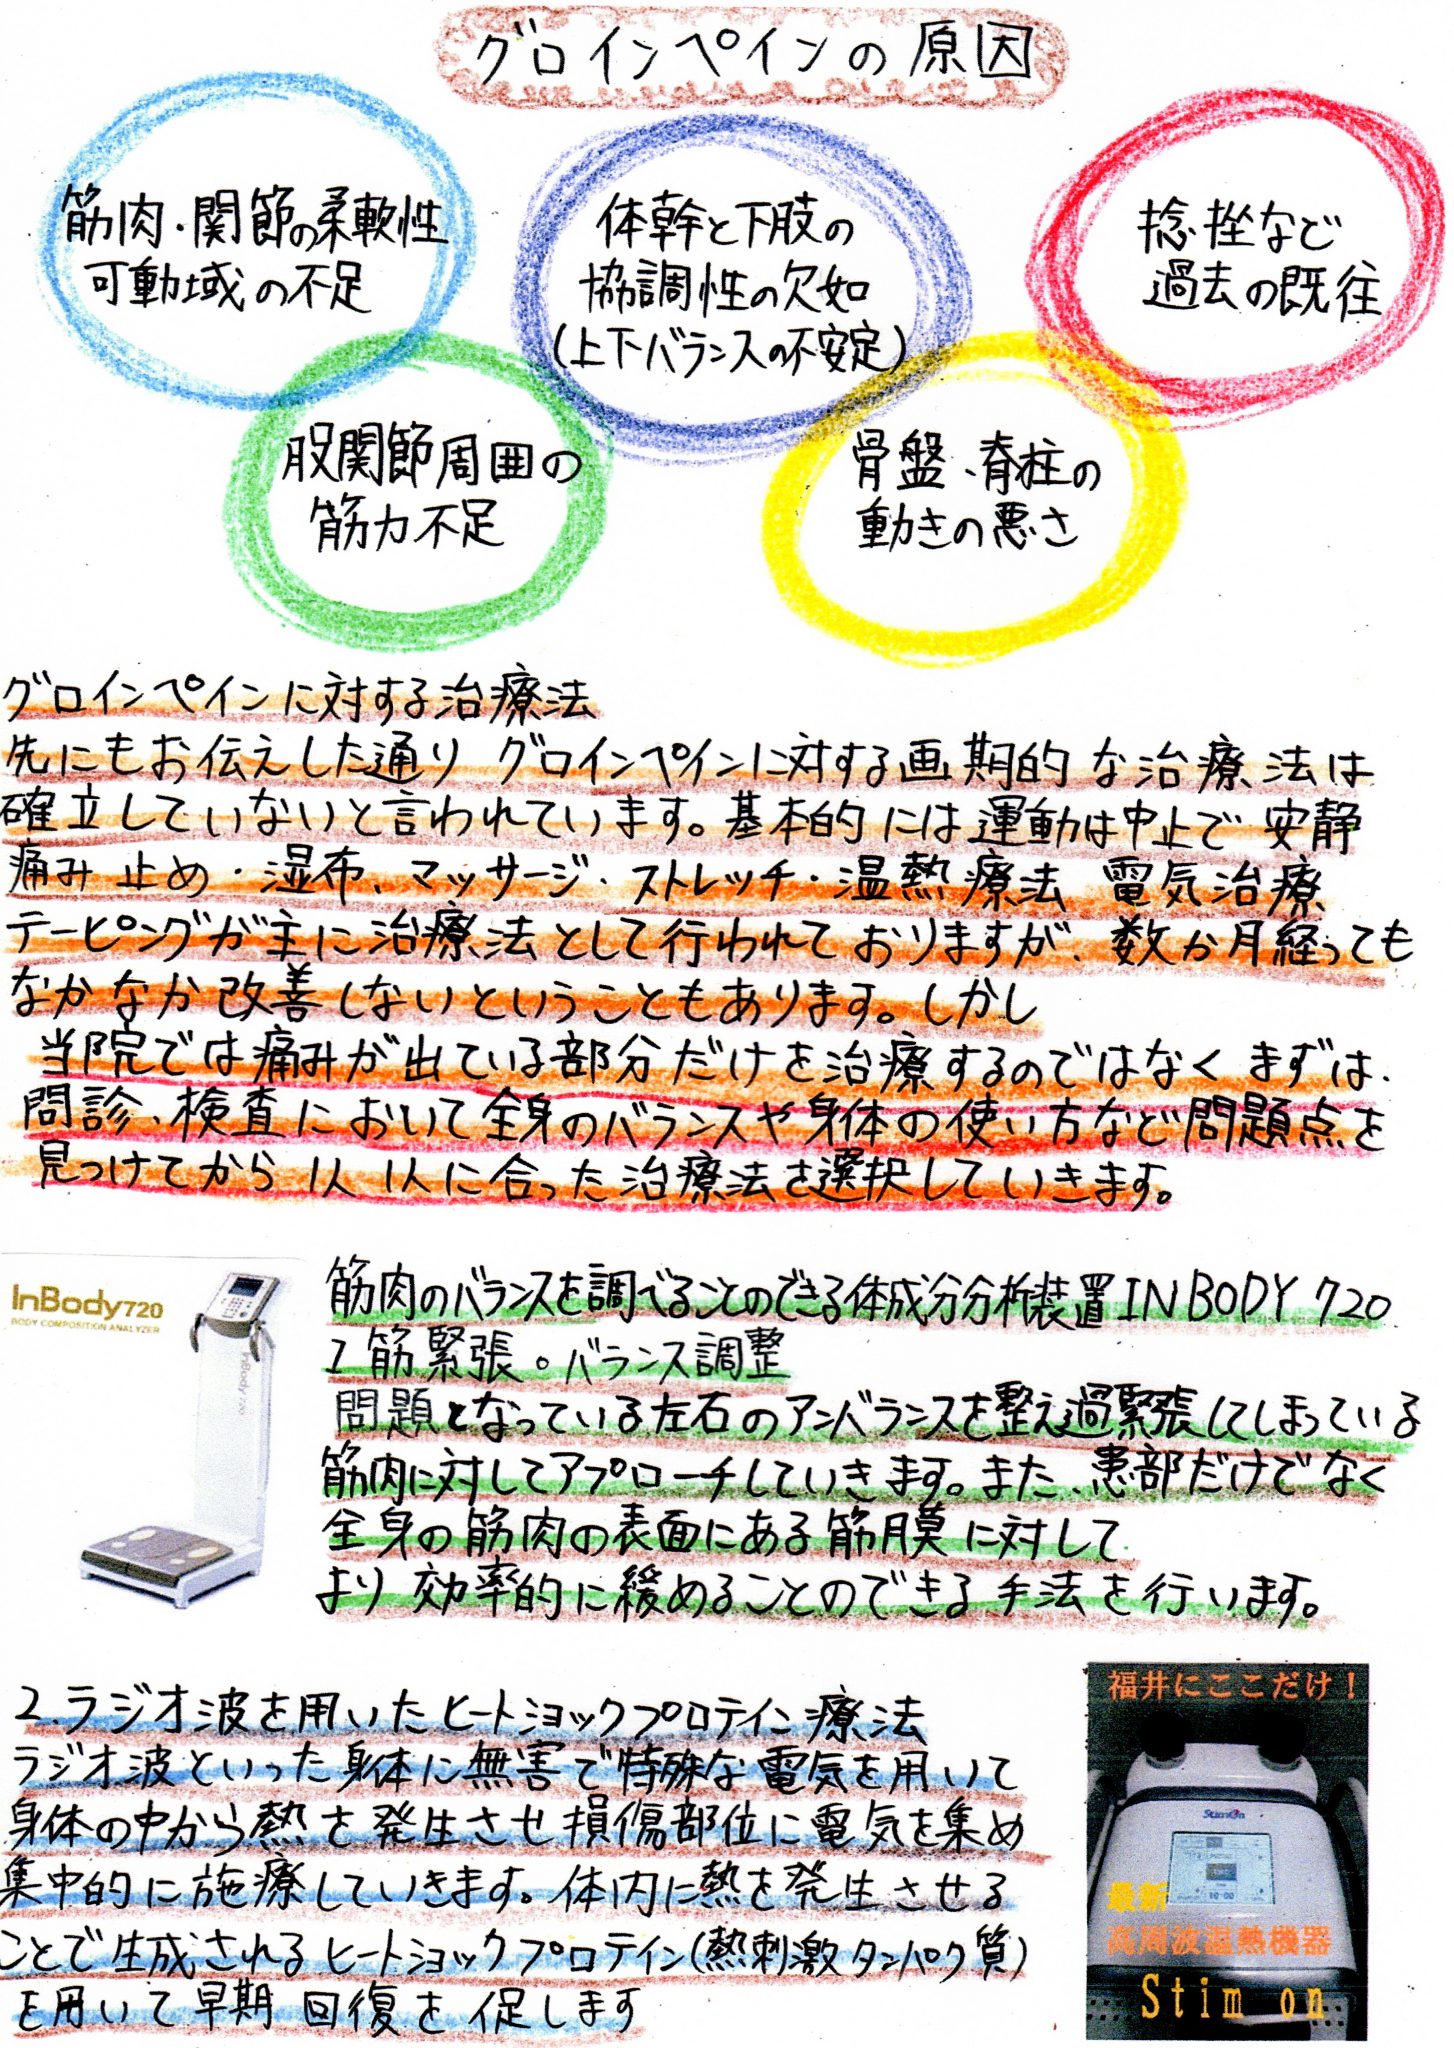 グロインペインの原因
筋肉・関節の柔軟性
可動域の不足
体幹と下肢の
協調性の欠如
(上下バランスの不安定)
捻挫など
過去の既往
股関節周囲の
筋力不足
骨盤、脊柱の
動きの悪さ
グロインペインに対する治療法
先にもお伝えした通り グロインペインに対する画期的な治療法は
確立していないと言われています。基本的には運動は中止で 安静
痛み止め・湿布、マッサージ・ストレッチ・温熱療法 電気治療
テーピングが主に治療法として行われておりますが、数か月経っても
なかなか改善しないということもあります。しかし
当院では痛みが出ている部分だけを治療するのではなく まずは、
問診、検査において全身のバランスや身体の使い方など問題点を
見つけてから 1人1人に合った治療法を選択していきます。
InBody720
BODY COMPOSITION ANALYZER
InBody720
筋肉のバランスを調べることのできる体成分分析装置INBODY 720
1 筋緊張。バランス調整
問題となっている左右のアンバランスを整え過緊張してしまっている
筋肉に対してアプローチしていきます。また、患部だけでなく
全身の筋肉の表面にある筋膜に対して
より効率的に緩めることのできる手法を行います。
2.ラジオ波を用いたヒートショックプロテイン療法
ラジオ波といった身体に無害で特殊な電気を用いて
身体の中から熱を発生させ損傷部位に電気を集め
集中的に施療していきます。体内に熱を発生させる
ことで生成されるヒートショックプロテイン(熱刺激タンパク質)
を用いて早期回復を促します
福井にここだけ！
StimOn
最新
高周波温熱機器
Stim on